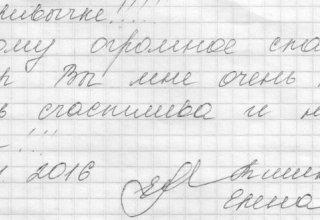 ривычке!!!!
ому огромное спа
р Вы мне очень
ь счастлива и н
!!!
2016
Елена